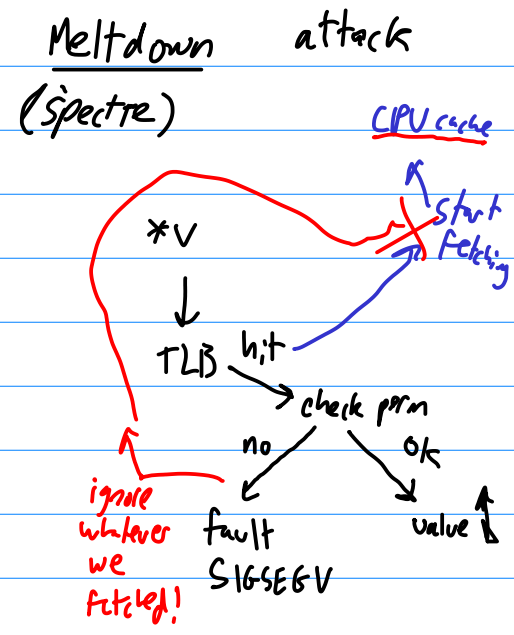 Meltdown attack
(Spectre)
CPU cache
start
fetching
*v
TLB hit
check perm
no
ok
ignore
whatever
we
fetched!
fault
SIGSEGV
value